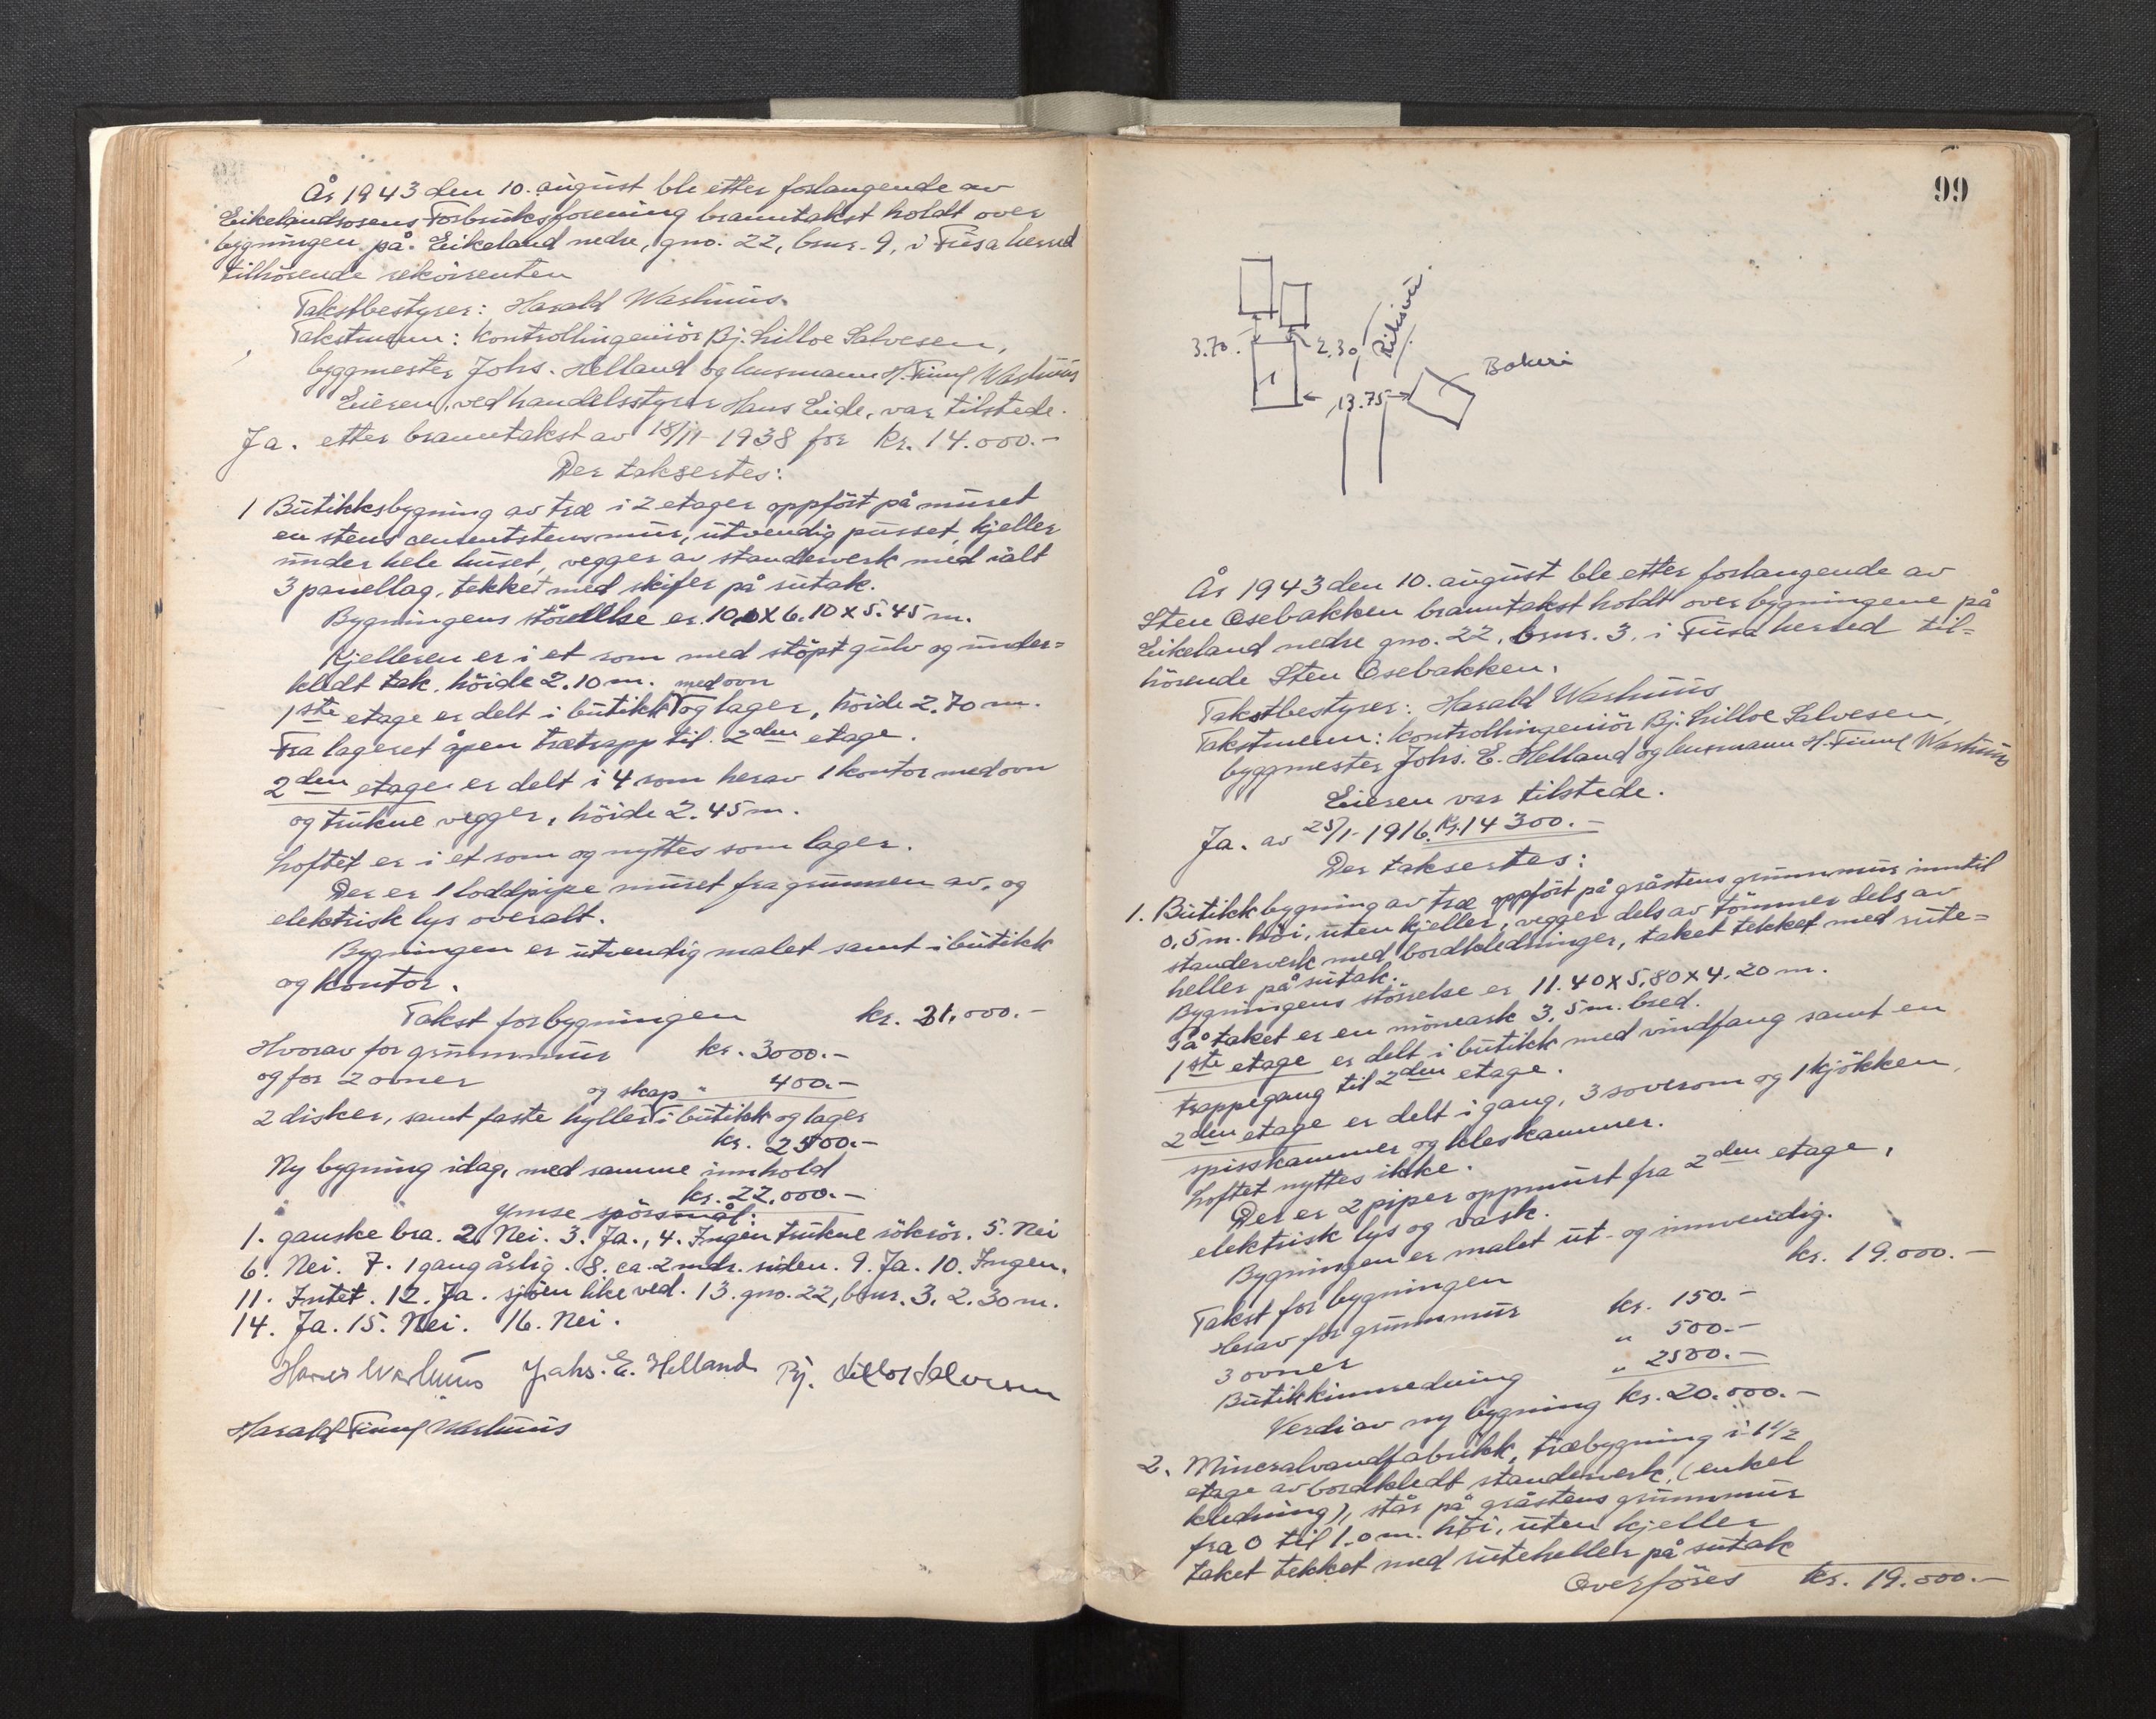 År 1943 den 10. august ble etter forlangende av
Eikelandsosens Forbruksforening branntakst holdt over
bygningen på Eikeland nedre, gno. 22, bnr. 9, i Fusa herred
tilhörende rekvirenten
Takstbestyrer: Harald Warhuus.
Takstmenn: kontrollingeniör Bj. Lilloe Salvesen,
byggmester Johs. Helland og lensmann H. Finuf Warhuus
Eieren, ved handelsstyrer Hans Eide, var tilstede.
Ja. etter branntakst av 18/11-1938 for Kr. 14.000.-
Der taksertes:
1 Butikksbygning av træ i 2 etager oppfört på muret
en stens cementstensmur, utvendig pusset, kjeller
under hele huset, vegger av standerverk med ialt
3 panellag, tekket med skifer på sutak.
Bygningens störellse er 10.0 x 6.10 x 5.45 m.
Kjelleren er i et rom med stöpt gulv og under=
kledt tak, höide 2.10 m.
med ovn
1ste etage er delt i butikk og lager, höide 2.70 m.
Fra lageret åpen trætrapp til 2den etage.
2den etage er delt i 4 rom herav 1 kontor med ovn
og trukne vegger, höide 2.45 m.
Loftet er i et rom og nyttes som lager.
Der er 1 loddpipe muret fra grunnen av, og
elektrisk lys overalt.
Bygningen er utvendig malet samt i butikk
og kontor.
Takst for bygningen kr. 21.000.-
Hvorav for grunnmur kr. 3000.-
og for 2 ovner " 400.-
og skap
2 disker, samt faste hyller i butikk og lager
kr. 2500.-
Ny bygning idag, med samme innhold
kr. 22.000.-
Ymse spörsmål:
1. ganske bra. 2. Nei. 3. Ja., 4. Ingen trukne rökrör. 5. Nei
6. Nei. 7. 1 gang årlig. 8. ca. 2 mdr. siden. 9. Ja. 10. Ingen.
11. Intet. 12. Ja. sjöen like ved. 13. gno. 22, bnr. 3. 2.30 m.
14. Ja. 15. Nei. 16. Nei.
Harald Warhuus Johs. E. Helland Bj. Lilloe Salvesen
Harald Finuf Warhuus
99
3.70.
2.30
Riksvei
Bakeri
1
13.75
År 1943 den 10. august ble etter forlangende av
Sten Osebakken branntakst holdt over bygningene på
Eikeland nedre gno. 22, bnr. 3, i Fusa herred til=
hörende Sten Osebakken.
Takstbestyrer: Harald Warhuus
Takstmenn: Kontrollingeniör Bj. Lilloe Salvesen,
byggmester Johs. E. Helland og lensmann H. Finuf Warhuus
Eieren var tilstede.
Ja. av 25/1-1916. Kr. 14 300.-
Der taksertes:
1. Butikkbygning av træ oppfört på gråstens grunnmur inntil
0,5 m. höi, uten kjeller, vegger dels av tömmer dels av
standerverk med bordkledninger, taket tekket med rute=
heller på sutak.
Bygningens störrelse er 11.40 x 5,80 x 4.20 m.
På taket er en möneark 3.5 m. bred.
1ste etage er delt i butikk med vindfang samt en
trappegang til 2den etage.
2den etage er delt i gang, 3 soverom og 1 kjökken,
spisskammer og kleskammer.
Loftet nyttes ikke.
Der er 2 piper oppmurt fra 2den etage,
elektrisk lys og vask.
Bygningen er malet ut- og innvendig.
Takst for bygningen kr. 19.000.-
Herav for grunnmur kr. 150.-
3 ovner " 500.-
Butikkinnredning " 2500.-
Verdi av ny bygning kr. 20.000.-
2. Mineralvandfabrikk, træbygning i 1 1/2
etage av bordkledt standerverk, (enkel
kledning), står på gråstens grunnmur
fra 0 til 1.0 m. höi, uten kjeller
taket tekket med ruteheller på sutak
Overföres kr. 19.000.-